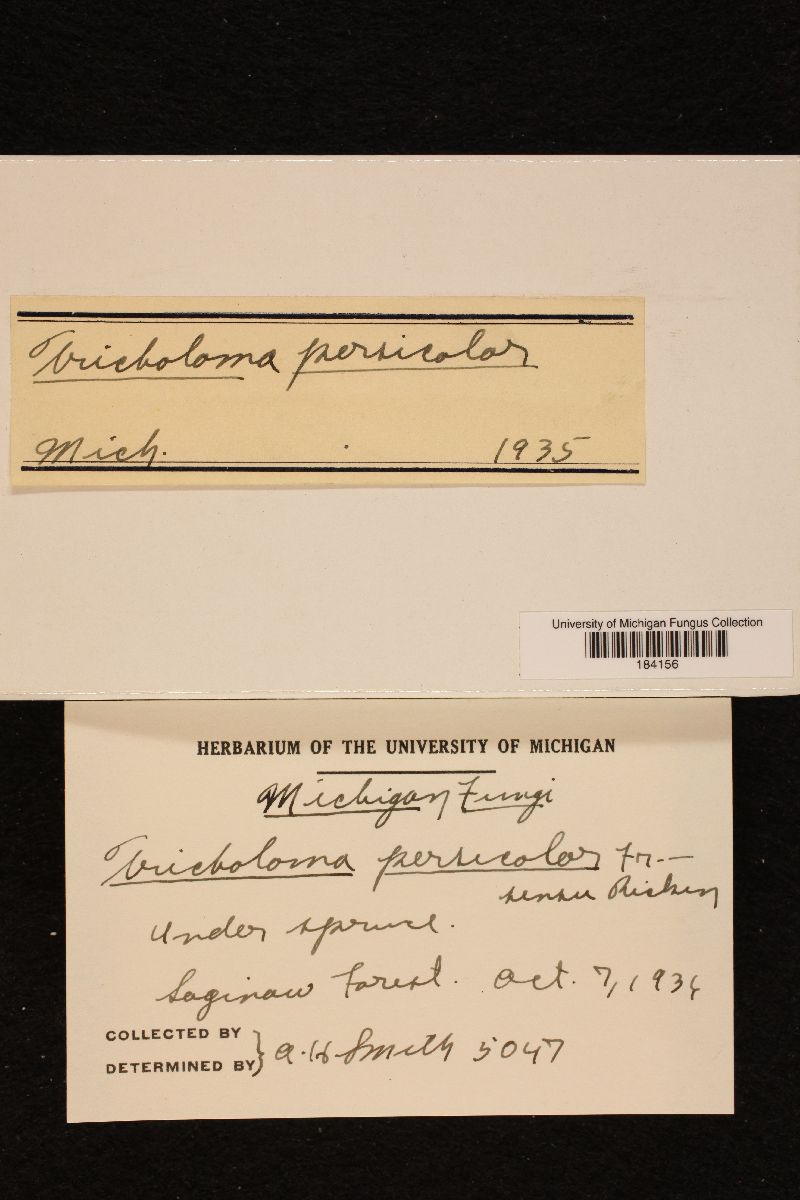 Tricholoma persicolor
Mich. 1935
University of Michigan Fungus Collection
184156
HERBARIUM OF THE UNIVERSITY OF MICHIGAN
Michigan Fungi
Tricholoma persicolor Fr.—
sensu Ricken
Under spruce.
Saginaw Forest. Oct. 7,
COLLECTED BY
DETERMINED BY } A. H. Smith 5047